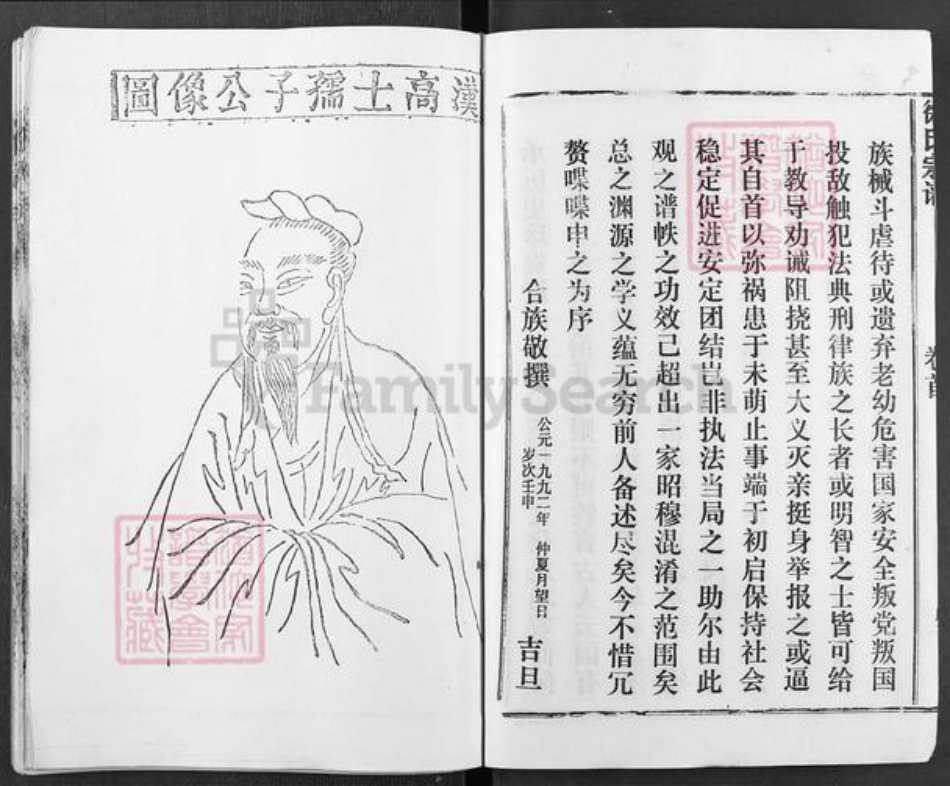 徐氏宗谱
卷首
族械斗虐待或遗弃老幼危害国家安全叛党叛国
投敌触犯法典刑律族之长者或明智之士皆可给
于教导劝诫阻挠甚至大义灭亲挺身举报之或逼
其自首以弥祸患于未萌止事端于初启保持社会
稳定促进安定团结岂非执法当局之一助尔由此
观之谱帙之功效己超出一家昭穆混淆之范围矣
总之渊源之学义蕴无穷前人备述尽矣今不惜冗
赘喋喋申之为序
合族敬撰
公元一九九二年
岁次壬申
仲夏月望日
吉旦
漢高士孺子公像圖
FamilySearch